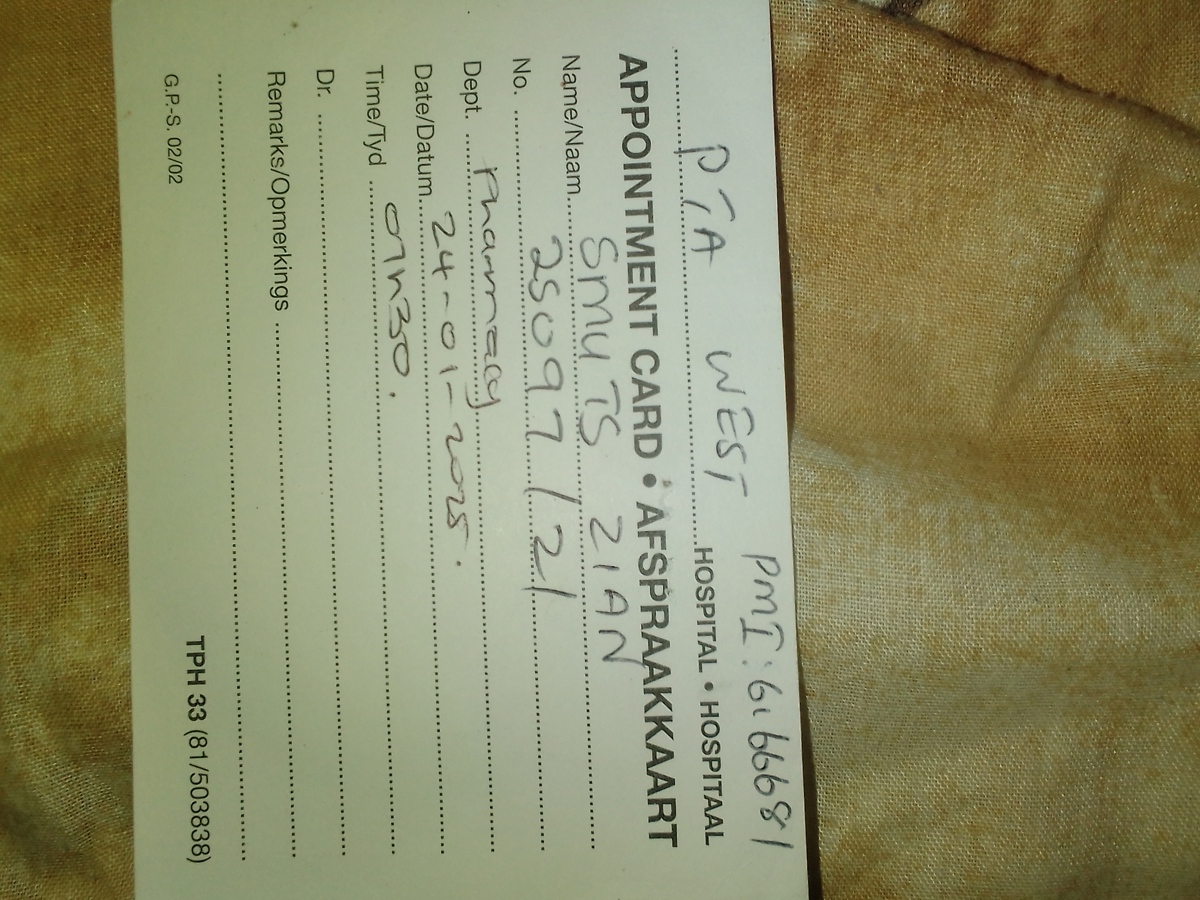 PMI:61666681
PTA WEST HOSPITAL • HOSPITAAL
APPOINTMENT CARD • AFSPRAAKKAART
Name/Naam SMUTS ZIAN
No. 25097/21
Dept. Pharmacy
Date/Datum 24-01-2025.
Time/Tyd 07h30.
Dr.
Remarks/Opmerkings
G.P.-S. 02/02 TPH 33 (81/503838)